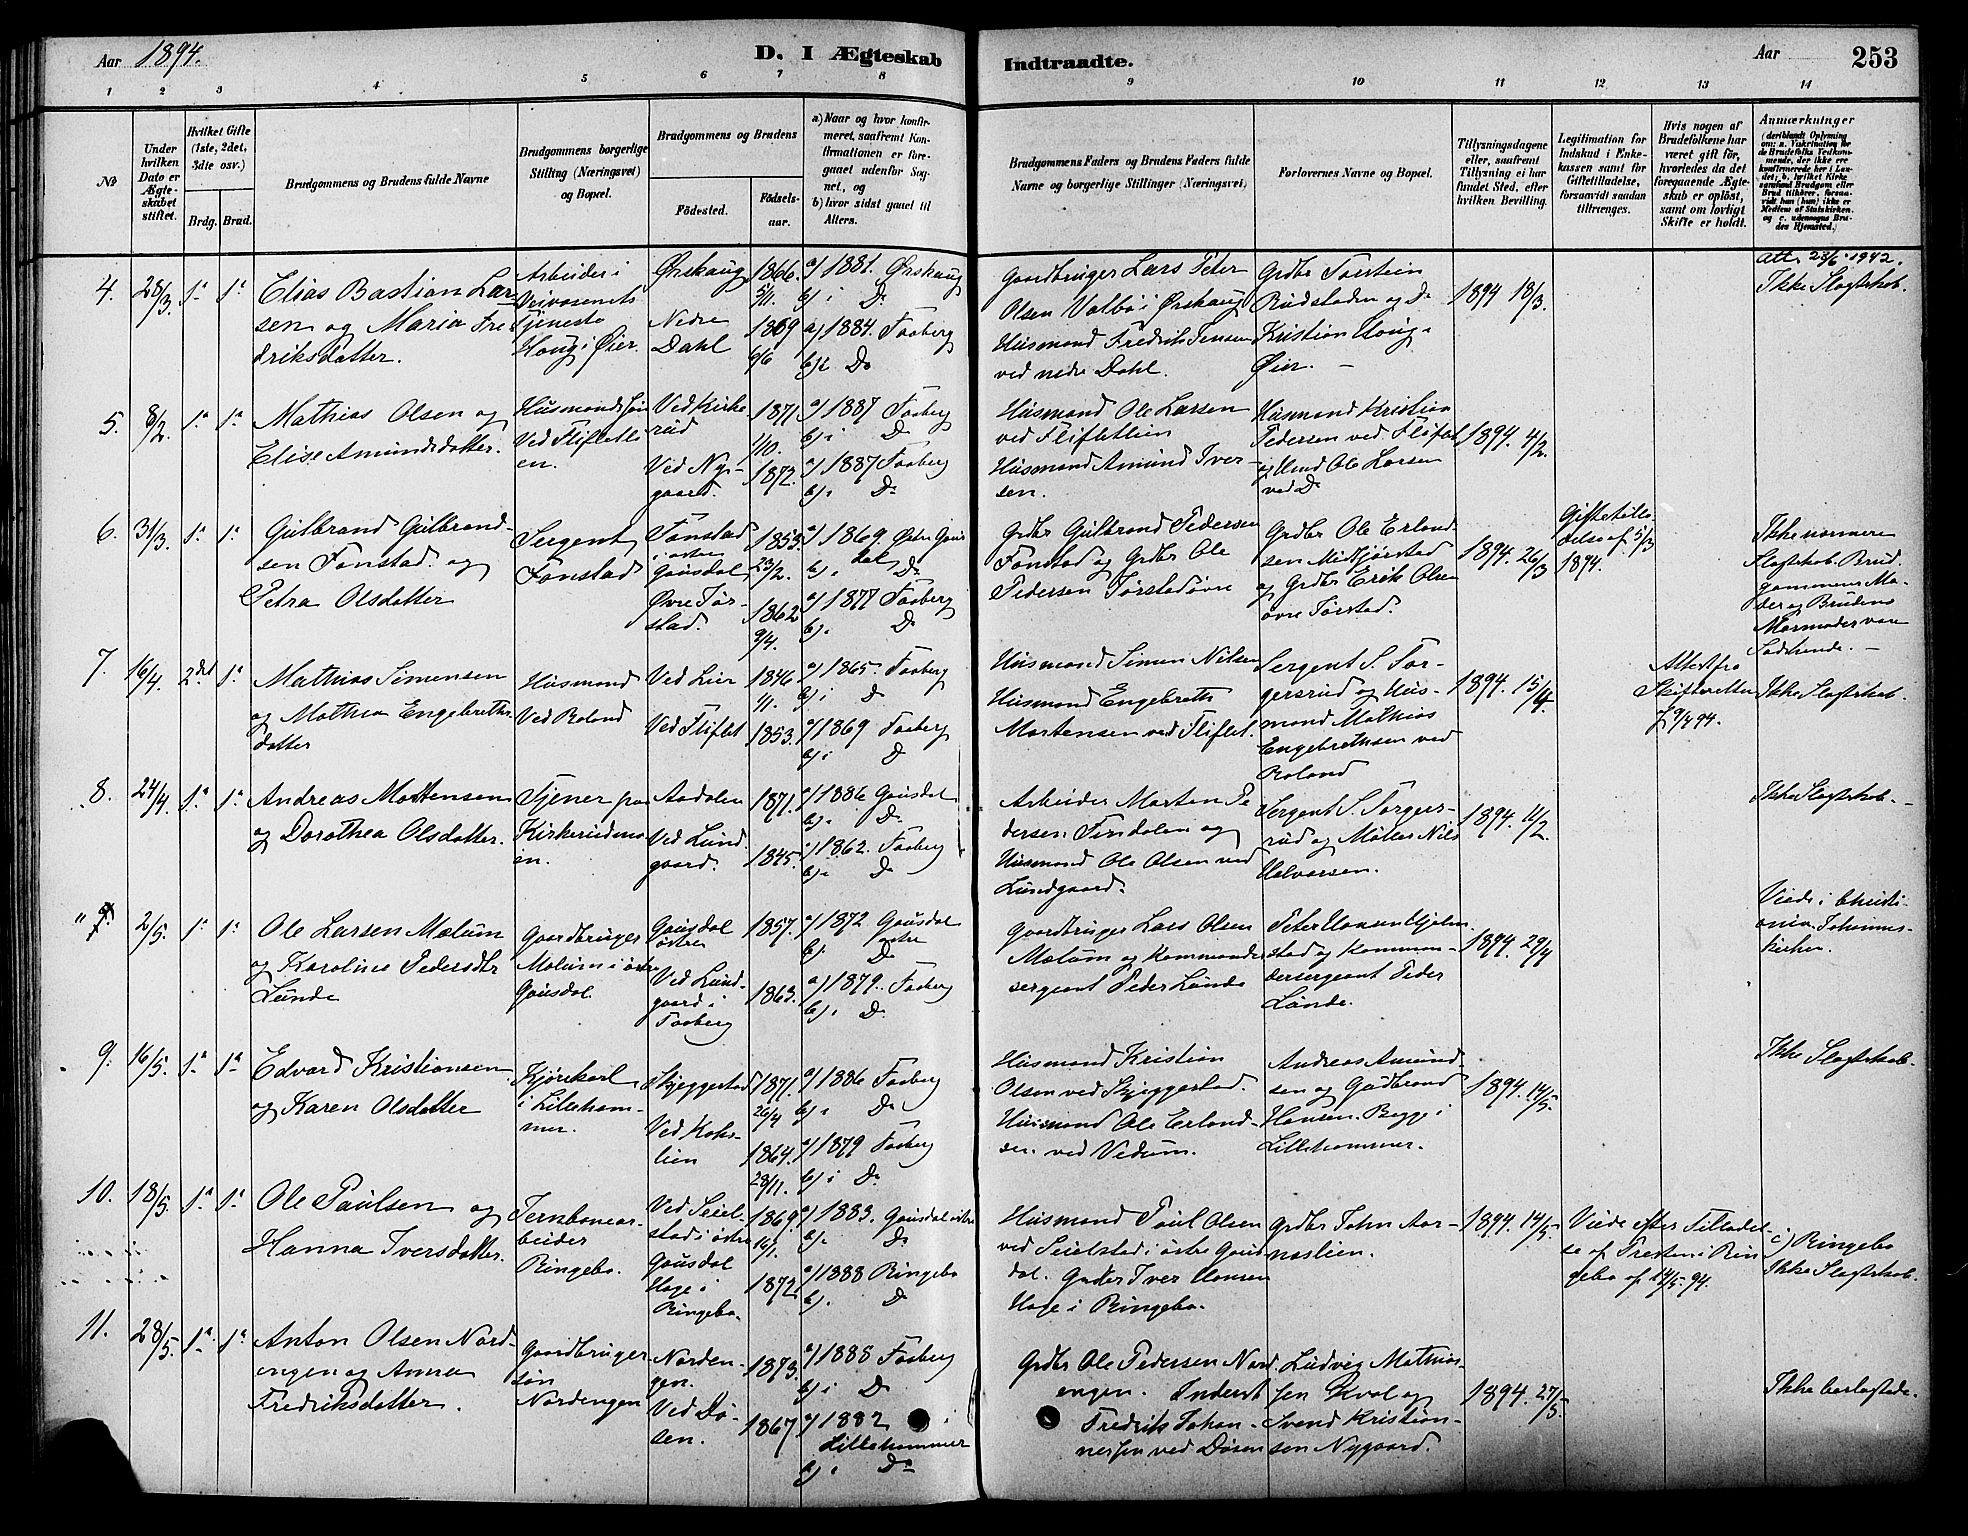 Aar 1894.
D. I Ægteskab
Indtraadte.
Aar
253
1 2 3 4 5 6 7 8 9 10 11 12 13 14
No
Under hvilken Dato er Ægteskabet stiftet.
Hvilket Gifte (1ste, 2det, 3die osv.)
Brdg. Brud.
Brudgommens og Brudens fulde Navne
Brudgommens borgerlige Stilling (Næringsvei) og Bopæl.
Brudgommens og Brudens
Fødested.
Fødselsaar.
a) Naar og hvor konfirmeret, saafremt Konfirmationen er foregaaet udenfor Sognet, og
b) hvor sidst gaaet til Alters.
Brudgommens Faders og Brudens Faders fulde Navne og borgerlige Stillinger (Næringsvei)
Forlovernes Navne og Bopæl.
Tillysningsdagene eller, saafremt Tillysning ei har fundet Sted, efter hvilken Bevilling.
Legitimation for Indskud i Enkekassen samt for Giftetilladelse, forsaavidt saadan tiltrænges.
Hvis nogen af Brudefolkene har været gift før, hvorledes da det foregaaende Ægteskab er opløst, samt om lovligt Skifte er holdt.
Anmærkninger
(deriblandt Oplysning om: a. Vakcination for de Brudefolks Vedkommende, der ikke ere konfirmerede her i Landet; b. hvilket Kirkesamfund Brudgom eller Brud tilhører, forsaavidt han (hun) ikke er Medlem af Statskirken, og c. udensogns Brudes Hjemsted.)
4. 28/3. 1ste 1ste
Elias Bastian Larsen og Maria Fredriksdatter.
Arbeider i Veivæsenets Tjeneste Houg i Øier.
Ørskaug
Nedre Dahl
1866. 5/11.
1869 9/6
a) 1881. Ørskaug b) i Do
a) 1884. Faaberg b) i Do
Gaardbruger Lars Peter Olsen Valbø i Ørskaug
Husmand Fredrik Jensen ved nedre Dahl.
Grdbr Torstein Rudstaden og Do Kristian Houg i Øier. —
1894 18/3.
att. 23/6 1942.
Ikke Slagtskab.
5. 8/2. 1ste 1ste
Mathias Olsen og Elise Amundsdatter.
Husmands søn Ved Flifletlien.
Ved Kirkerud
Ved Nygaard.
1871. 1/10.
1872.
a) 1887 Faaberg b) i Do
a) 1887 Faaberg b) i Do
Husmand Ole Larsen ved Flifletlien
Husmand Amund Iversen.
Husmand Kristian Pedersen ved Fliflet og Hmd Ole Larsen ved Do
1894. 4/2.
6. 31/3. 1ste 1ste
Gulbrand Gulbrandsen Fonstad og Petra Olsdatter
Sergent, Fonstad
Fonstad i østre Gausdal,
Øvre Jørstad.
1853. 23/2.
1862 9/4.
a) 1869. Østre Gausdal b) i Do
a) 1877 Faaberg b) i Do
Grdbr Gulbrand Pedersen Fonstad og Grdbr Ole Pedersen Jørstad øvre
Grdbr Ole Erlandsen Midtjørstad og Grdbr Erik Olsen øvre Jørstad.
1894. 26/3
Giftetilladelse af 5/3 1894.
Ikke nærmere Slagtskab. Brudgommens Moder og Brudens Mormoder vare Sødskende. —
7. 16/4. 2det 1ste
Mathias Simensen og Mathea Engebrethsdatter
Husmand Ved Roland
Ved Lier
Ved Fliflet
1846 1/11.
1853.
a) 1865. Faaberg b) i Do
a) 1869 Faaberg b) i Do
Husmand Simen Nilsen
Husmand Engebreth Mortensen ved Fliflet.
Sergent S. Torgersrud og Husmand Mathias Engebrethsen ved Roland
1894. 15/4.
Attest fra Skifteretten 9/4 94.
Ikke Slagtskab.
8. 24/4. 1ste 1ste
Andreas Mortensen og Dorothea Olsdatter.
Tjener paa Kirkerudmoen.
Aadalen
Ved Lundgaard.
1871.
1845.
a) 1886 Gausdal b) i Do
a) 1862. Faaberg b) i Do
Arbeider Morten Pedersen Findalen og Husmand Ole Olsen ved Lundgaard.
Sergent S. Torgersrud og Møller Nils Halvorsen.
1894. 11/2.
Ikke Slagtskab. —
" 2/5. 1ste 1ste
Ole Larsen Mælum og Karoline Pedersdtr Lunde
Gaardbruger Mælum i østre Gausdal.
Gausdal østre
Ved Lundgaard i Faaberg
1857.
1863.
a) 1872 Gausdal østre b) i Do
a) 1879. Faaberg b) i Do
Gaardbruger Lars Olsen Mælum og Kommandersergent Peder Lunde
Peter Hansen Hjelmstad og Kommandersergeant Peder Lunde.
1894. 29/4
Viede i Christiania Johanneskirken.
9. 16/5. 1ste 1ste
Edvard Kristiansen og Karen Olsdatter
Kjørekarl i Lillehammer.
Skjeggestad
Ved Kokslien
1871. 26/4
1864. 28/11.
a) 1886 Faaberg b) i Do
a) 1879 Faaberg b) i Do
Husmand Kristian Olsen ved Skjeggestad.
Husmand Ole Erlandsen ved Vedum.
Andreas Amundsen og Gudbrand Hansen. Begge i Lillehammer.
1894. 14/5.
Ikke Slagtskab.
10. 18/5. 1ste 1ste
Ole Paulsen og Hanna Iversdatter.
Jernbanearbeider Ringebo.
Ved Seielstad i østre Gausdal
Hage i Ringebo.
1869. 16/1.
1872
a) 1883. Gausdal østre b) i Do
a) 1888 Ringebo b) i Do
Husmand Paul Olsen ved Seielstad i østre Gausdal. Grdbr Iver Hansen Hage i Ringebo.
Grdbr John Aarnæslien.
1894. 14/5.
Viede efter Tilladelse af Presten i Ringebo af 14/5. 94.
c) Ringebo
Ikke Slagtskab.
11. 28/5. 1ste 1ste
Anton Olsen Nordengen og Anna Fredriksdatter.
Gaardbruger søn Nordengen
Nordengen.
Ved Døsen.
1873.
1867
a) 1888 Faaberg b) i Do
a) 1882 Lillehammer b) i Do
Grdbr Ole Pedersen Nordengen. Inderst Fredrik Johannessen ved Døsen
Ludvig Mathiassen Kval og Svend Kristiansen Nygaard.
1894. 27/5.
Ikke beslægtede.